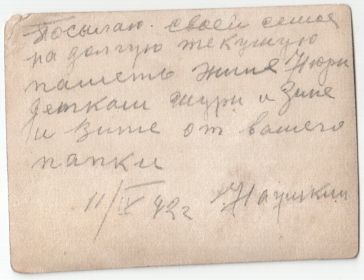 Посылаю своей семье
на долгую текущую
память жине Нюри
деткам Шури и Зине
и Вите от вашего
папки
11/V 42г